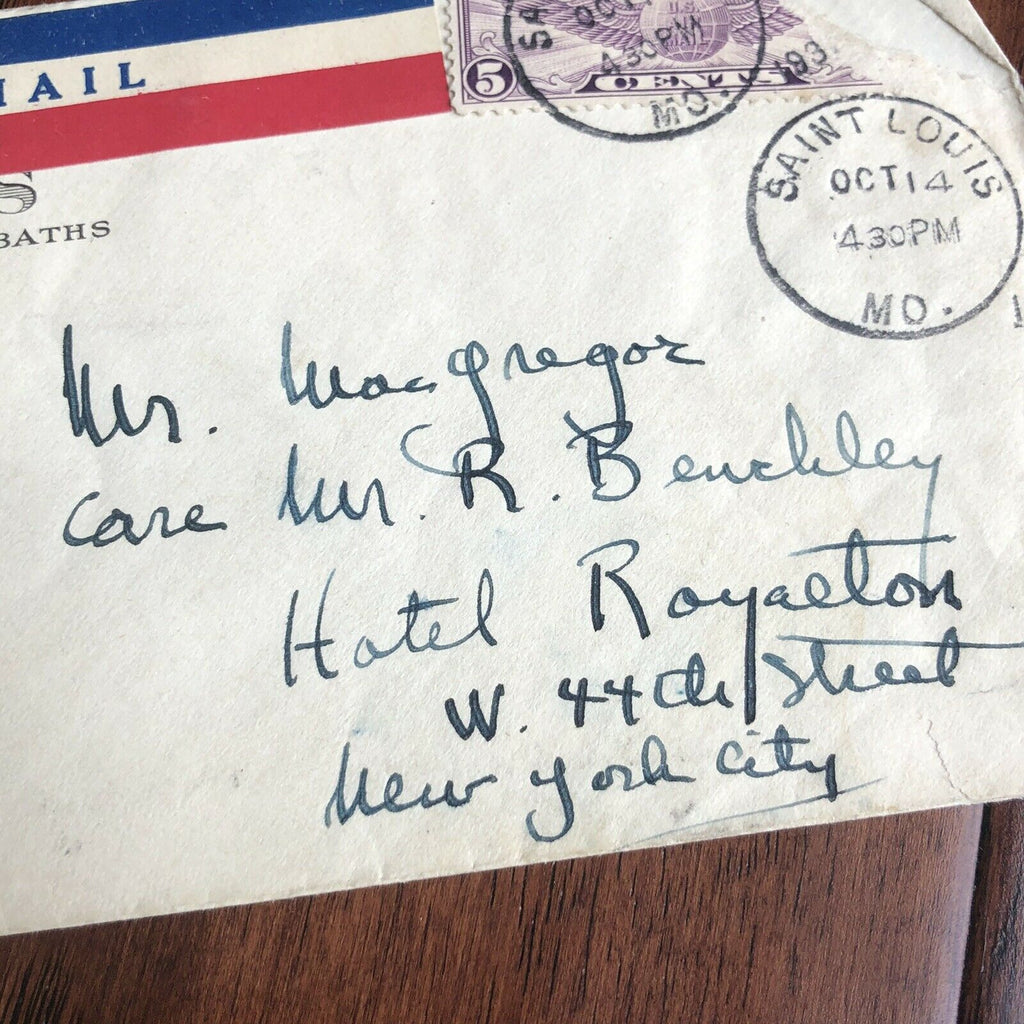 MAIL
S
BATHS
5 CENTS
U.S.
SA
OCT 1
4 30 PM
MO.
193
SAINT LOUIS
OCT 14
4 30 PM
MO.
1
Mr. Macgregor
care Mr. R. Benchley
Hotel Royalton
W. 44th Street
New York City